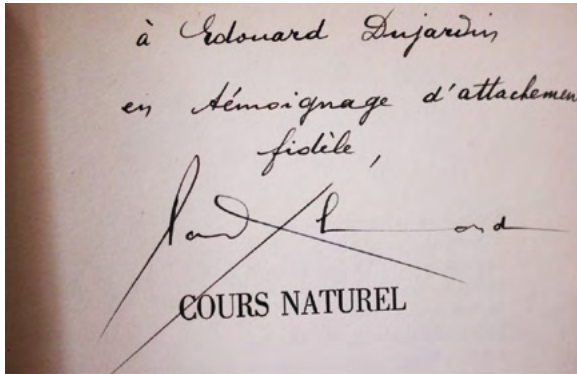 à Edouard Dujardin
en témoignage d'attachemen
fidèle,
COURS NATUREL